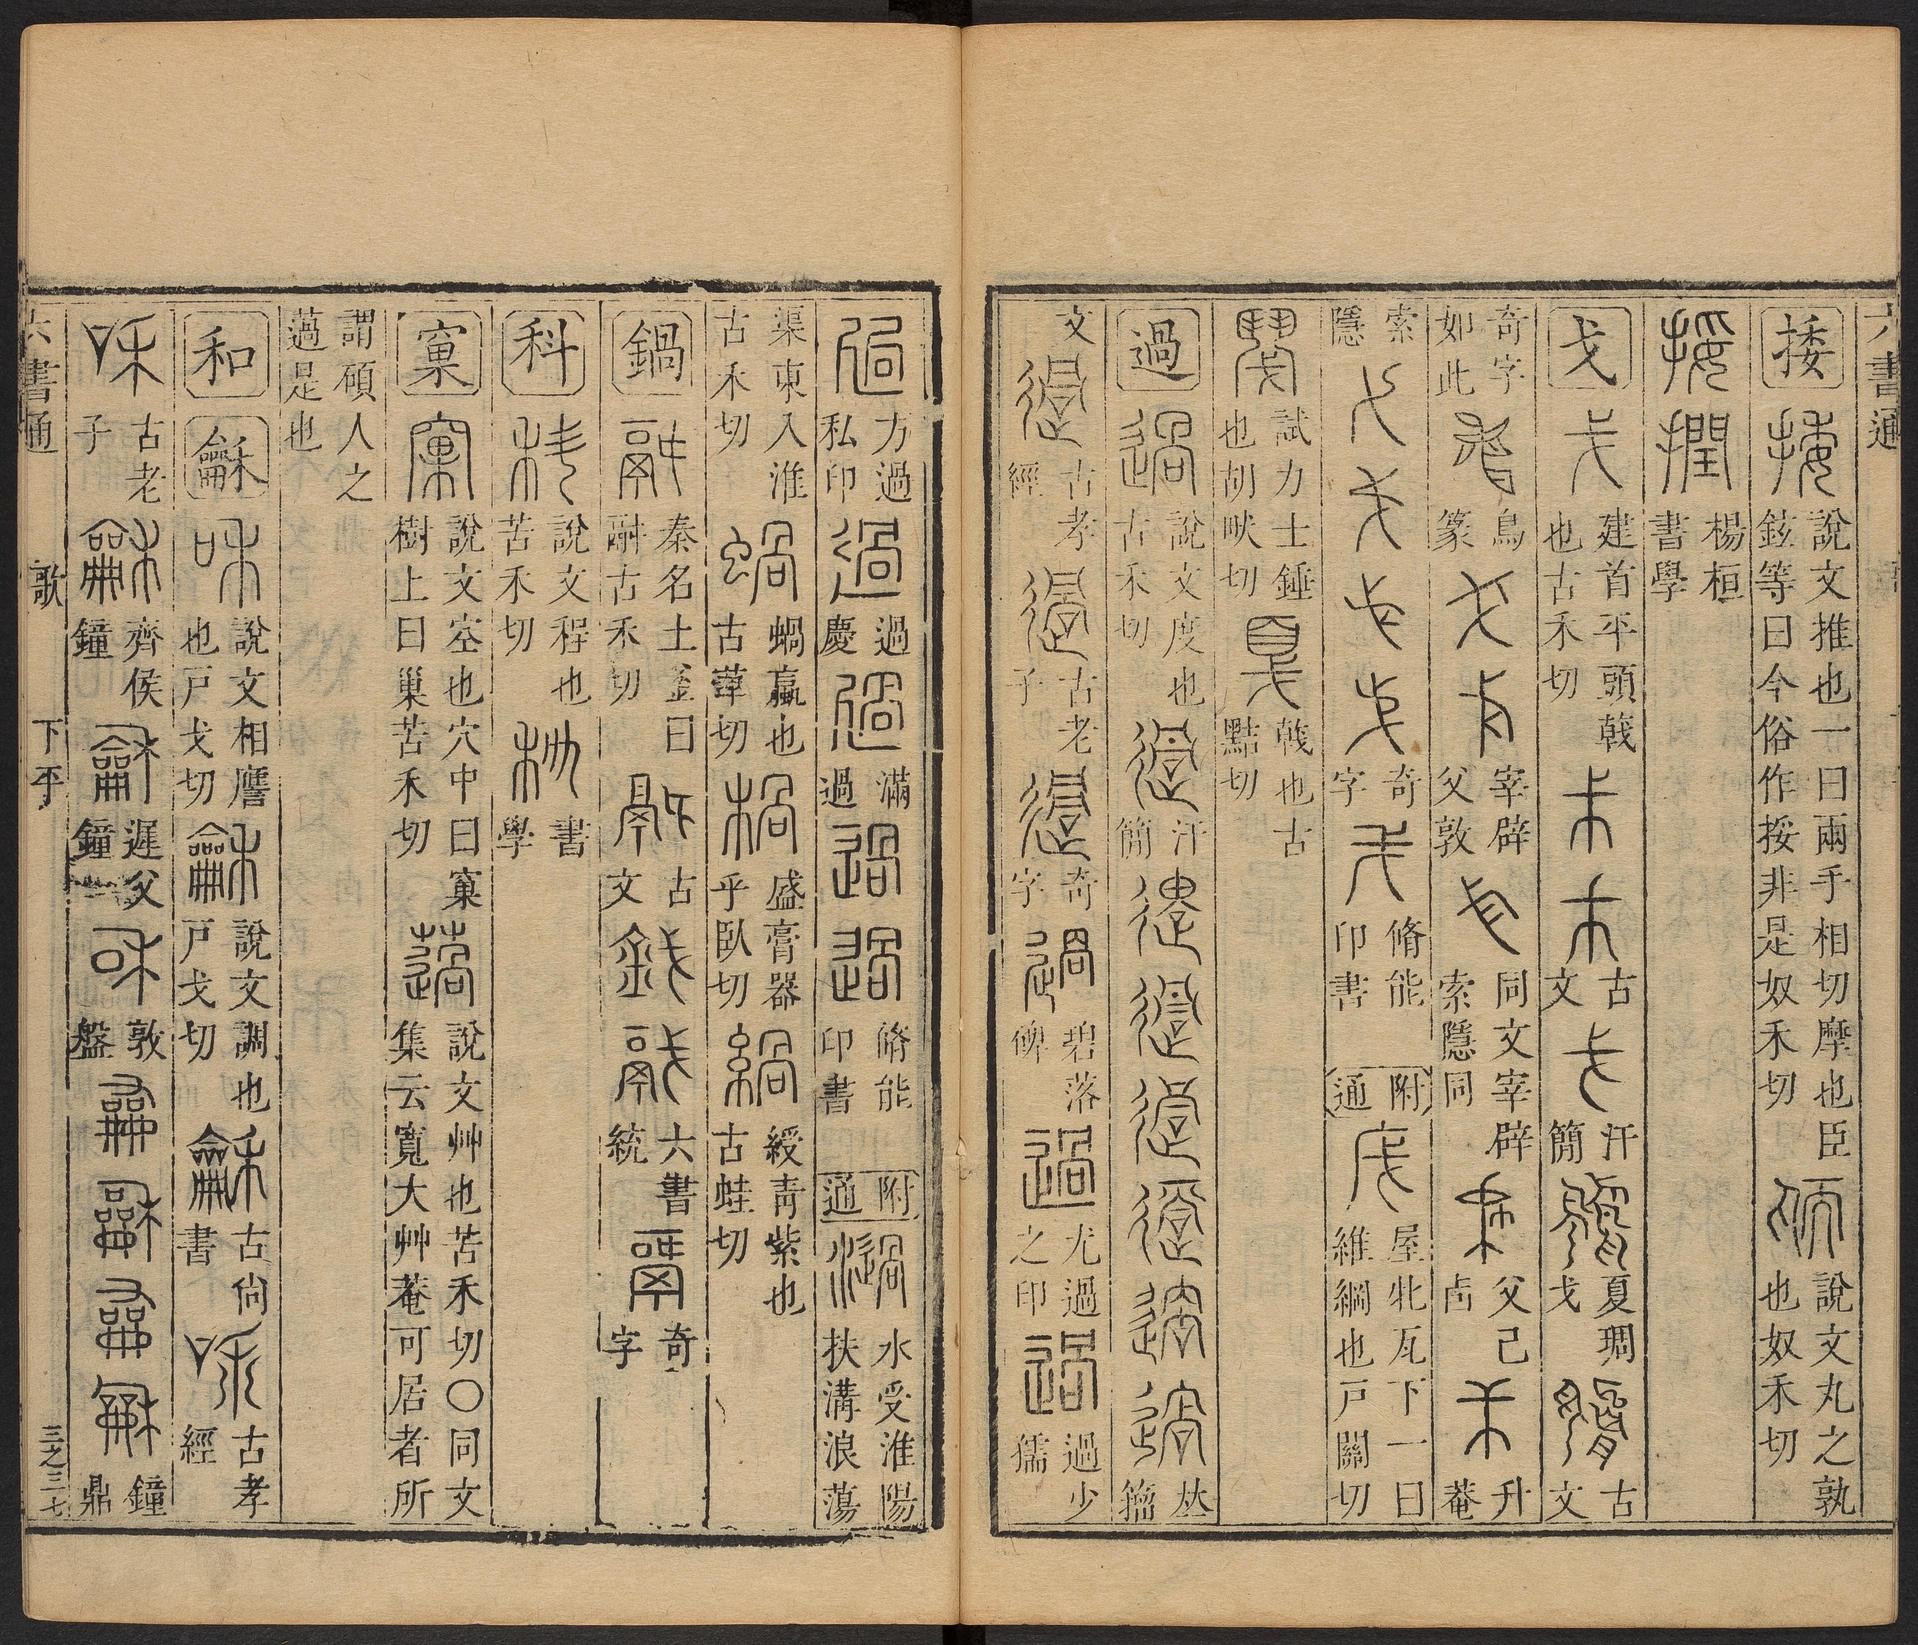 六書通
捼 說文推也一曰兩手相切摩也臣鉉等曰今俗作挼非是奴禾切 說文丸之孰也奴禾切
楊桓書學
戈 建首平頭戟也古禾切 古文 汗簡 夏琱戈 古文
奇字如此 鳥篆 宰辟父敦 同文宰辟索隱同 父己卣 升菴
索隱 奇字 脩能印書 附通 屋牝瓦下一曰維綱也戸關切
試力士錘也胡畎切 戟也古黠切
過 說文度也古禾切 汗簡 籀
文 古孝經 古老子 奇字 碧落碑 尤過之印 過少孺
方過私印 過過慶 滿過 脩能印書 附通 水受淮陽扶溝浪蕩
渠東入淮古禾切 蝸蠃也古華切 盛膏器乎臥切 綬青紫也古蛙切
鍋 秦名土釜曰䰛古禾切 古文 六書統 奇字
科 說文程也苦禾切 書學
窠 說文空也穴中曰窠樹上曰巢苦禾切 說文艸也苦禾切〇同文集云寬大艸菴可居者所
謂碩人之薖是也
和 龢 說文相譍也戸戈切 說文調也戸戈切 古尙書 古孝經
古老子 齊侯鐘 遲父鐘 敦盤 鐘鼎
六書通 歌 下平 三之三七